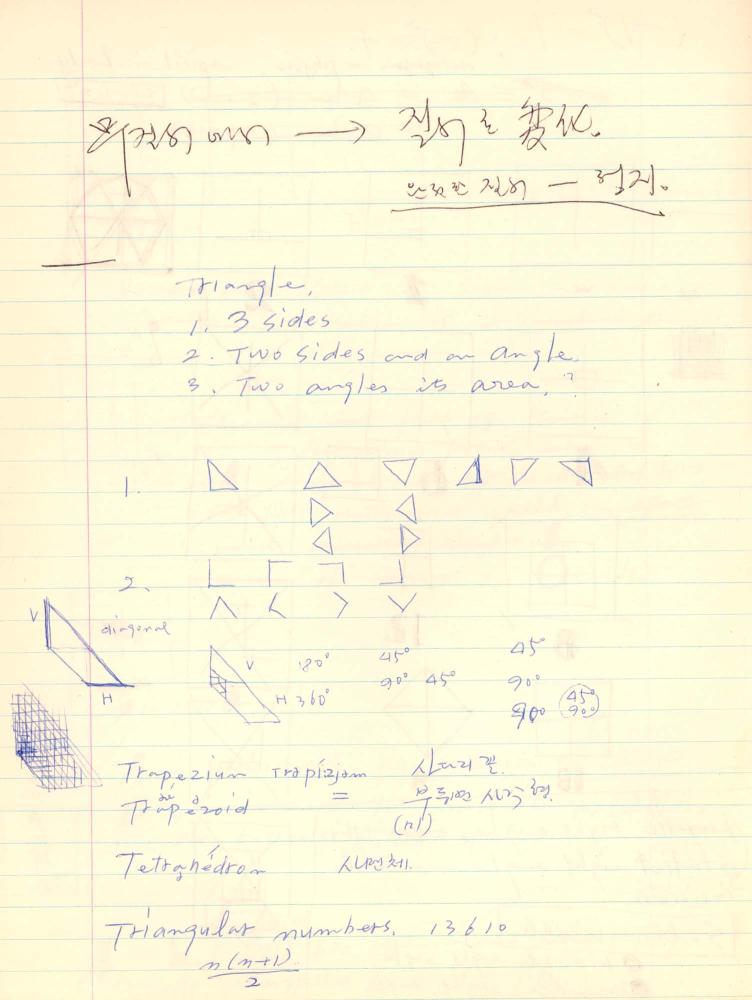 무질서에서 → 질서로 変化.
완전한 질서 —
Triangle,
1. 3 sides
2. Two sides and an angle.
3. Two angles its area, ?
1.
2.
V
diagonal
H
V
180°
H 360°
45°
90° 45°
45°
90°
90°
45°
90°
Trapezium trapiziəm 사다리꼴.
Trapezoid = 부등변 사각형.
(n)
Tetrahédron 사면체.
Triangular numbers. 1 3 6 10
n(n+1)
2